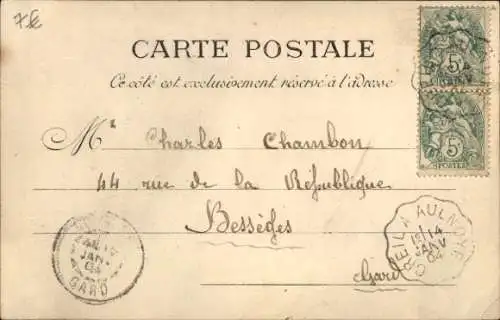 7€
CARTE POSTALE
Ce côté est exclusivement réservé à l'adresse
Mr Charles Chambon
44 rue de la République
Bessèges
Gard
5
POSTES
5
POSTES
CREIL A AULNOYE
14
JANV
04
JANV
04
GARD